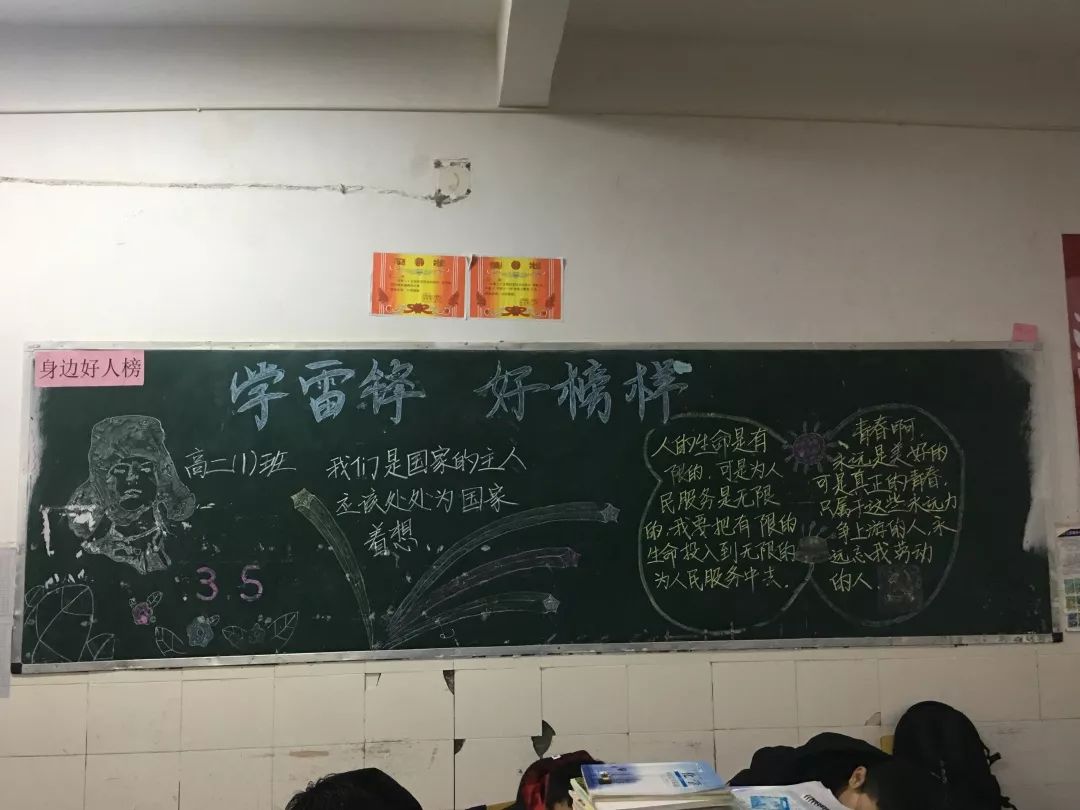 奖状
奖状
身边好人榜
学雷锋 好榜样
高二(1)班
我们是国家的主人
应该处处为国家
着想
3.5
人的生命是有
限的,可是为人
民服务是无限
的,我要把有限的
生命投入到无限的
为人民服务中去.
青春啊,
永远是美好的
可是真正的青春,
只属于这些永远力
争上游的人,永
远忘我劳动
的人